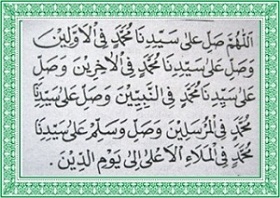 اَللّٰهُمَّ صَلِّ عَلٰى سَيِّدِنَا مُحَمَّدٍ فِى الْاَوَّلِيْنَ
وَصَلِّ عَلٰى سَيِّدِنَا مُحَمَّدٍ فِى الْاٰخِرِيْنَ وَصَلِّ
عَلٰى سَيِّدِنَا مُحَمَّدٍ فِى النَّبِيِّيْنَ وَصَلِّ عَلٰى سَيِّدِنَا
مُحَمَّدٍ فِى الْمُرْسَلِيْنَ وَصَلِّ وَسَلِّمْ عَلٰى سَيِّدِنَا
مُحَمَّدٍ فِى الْمَلَاءِ الْاَعْلٰى اِلٰى يَوْمِ الدِّيْنِ.